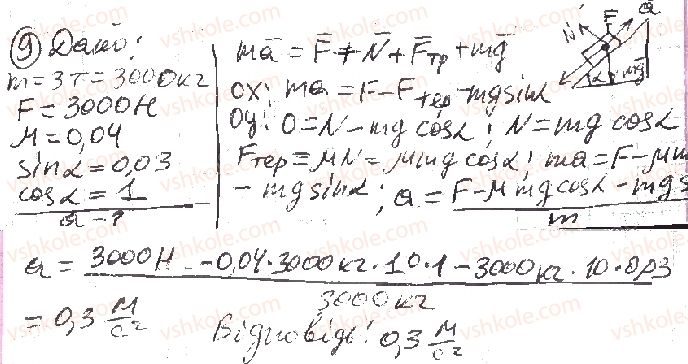 ⑨ Дано:
m = 3 т = 3000 кг
F = 3000 Н
μ = 0,04
sin α = 0,03
cos α = 1
a - ?
ma̅ = F̅ + N̅ + F̅тр + mg̅
OX: ma = F - Fтер - mg sin α
Oy: 0 = N - mg cos α; N = mg cos α
Fтер = μN = μmg cos α; ma = F - μm
- mg sin α; a = F - μmg cos α - mg s
m
N̅ F̅ a̅
α mg̅
a = 3000 Н - 0,04·3000 кг·10·1 - 3000 кг·10·0,03
3000 кг
= 0,3 м/с²
Відповідь: 0,3 м/с²
vshkole.com